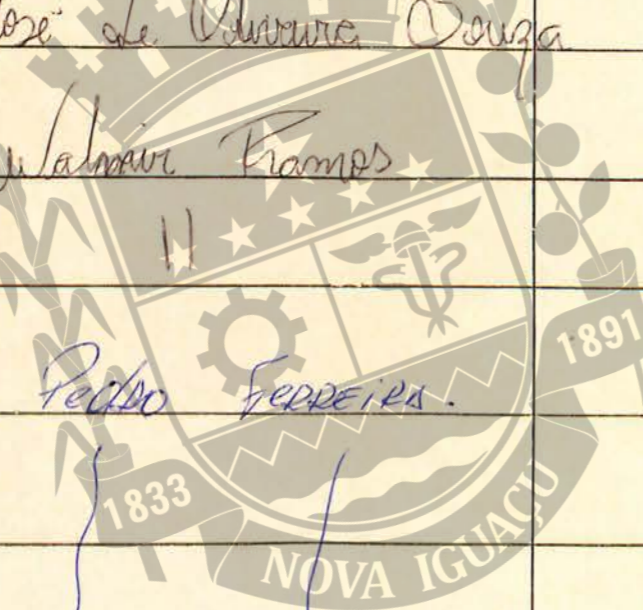 José de Oliveira Souza
Walmir Ramos
11
1891
Pedro Ferreira.
1833
NOVA IGUAÇU